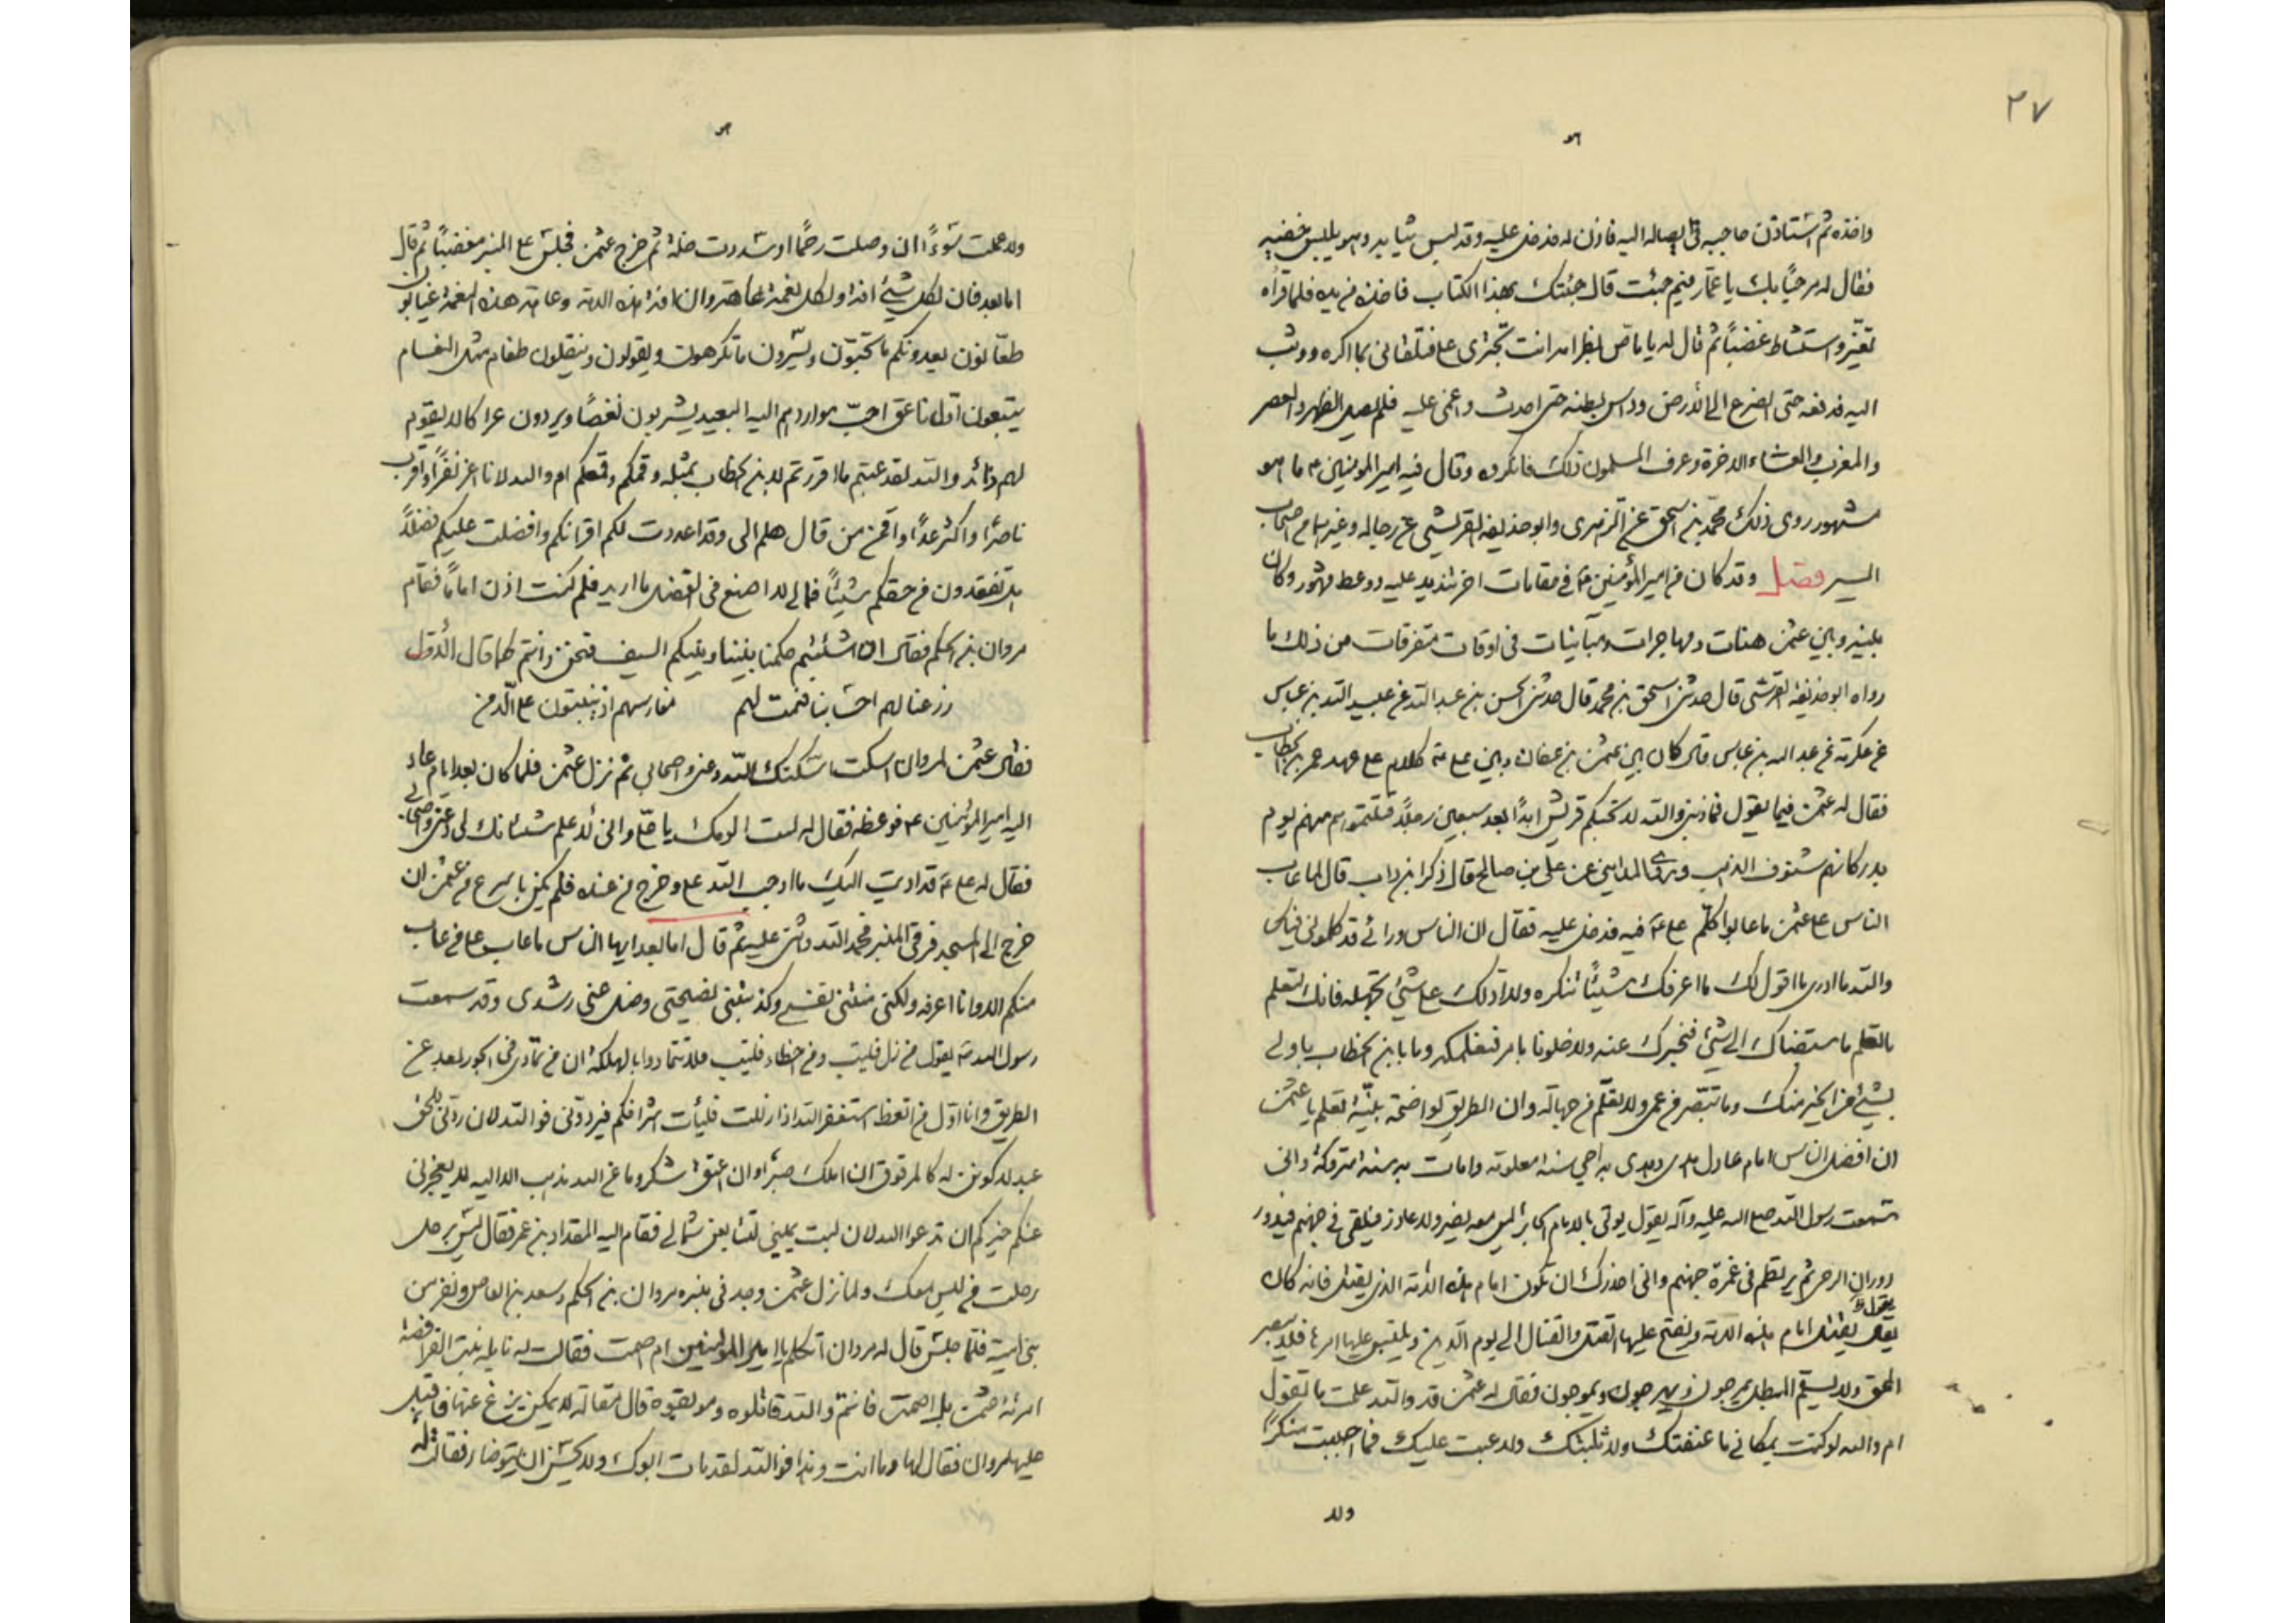 ٣٧
واخذه ثم استاذن حاجبه في ايصاله اليه فاذن له فدخل عليه وقد لبس ثيابه وهو يلبس خفيه
فقال له مرحبًا بك يا عمّار فيم جئت قال جئتك بهذا الكتاب فاخذه من يده فلما قرأه
تغيّر واستشاط غضبًا ثم قال له يا ماصّ بظر امه انت تجترى على فتلقانى بما اكره ووثب
اليه فدفعه حتى انصرع الى الأرض وداس بطنه حتى احدث واغمى عليه فلم يصل الظهر والعصر
والمغرب والعشاء الاخرة وعرف المسلمون ذلك فانكروه وقال فيه امير المومنين ع ما هو
مشهور روى ذلك محمّد بن اسحق عن الزهرى وابو حذيفه القرشى عن رجاله وغيرهما من اصحاب
السير فصل وقد كان من امير المؤمنين ع في مقامات اخر تنديد عليه ووعظ مشهور وكان
بينه وبين عثمن هنات ومهاجرات ومباينات فى اوقات متفرقات من ذلك ما
رواه ابو حذيفة القرشى قال حدثنى اسحق بن محمد قال حدثنى الحسن بن عبد الله عن عبيد الله بن عباس
عن عكرمه عن عبد الله بن عباس قال كان بين عثمن بن عفان وبين على ع كلام على عهد عمر بن الخطاب
فقال له عثمن فيما يقول فما ذنبى والله لا تحبكم قريش ابدًا بعد سبعين رجلًا قتلتموهم منهم يوم
بدر كانهم شنوف الذهب وروى المداينى عن على بن صالح قال ذكر ابن داب قال لما عاب
الناس على عثمن ما عابوا كلّم على ع فيه فدخل عليه فقال ان الناس ورائى قد كلمونى فيك
والله ما ادرى ما اقول لك ما اعرفك شيئًا تنكره ولا ادلك على شئ تجهله فانك لتعلم
ما نعلم ما سبقناك الى شئ فنخبرك عنه ولا خلونا بامر فنعلمكه وما بابن الخطاب باولى
بشئ من الخير منك وما تبصّر من عمى ولا تعلّم من جهالة وان الطريق لواضحة بيّنة تعلم يا عثمن
ان افضل الناس امام عادل هدى وهدى به احى سنة معلومة وامات به سنة متروكة وانى
سمعت رسول الله صلى الله عليه وآله يقول يوتى بالامام الجائر ليس معه نصير ولا عاذر فيلقى فى جهنم فيدور
دوران الرحى ثم يرتطم فى غمرة جهنم وانى احذرك ان تكون امام هذه الامّة الذى يقتل فانه كان
يقول
يقتل امام هذه الامة ويفتح عليها القتل والقتال الى يوم الدين ويلتبس عليها امرها فلا يبصر
الحق ولا يستقيم المبطل يمرجون ويموجون فقال له عثمن قد والله علمت ما تقول
ام والله لو كنت بمكانى ما عنفتك ولا ثلبتك ولا عبت عليك فما احببت منكرًا
ولا
ولا عملت سوءًا ان وصلت رحمًا او سددت خلة ثم خرج عثمن فجلس على المنبر مغضبًا ثم قال
اما بعد فان لكل شئ افة ولكل نعمة عاهة وان افة هذه الامة وعاهة هذه النعمة عيابون
طعّانون يبدونكم ما تحبّون ويسّرون ما تكرهون ويقولون وتقولون طغام مثل النعام
يتبعون اول ناعق احبّ مواردهم اليه البعيد يشربون نغصًا ويردون عكرا لا يقوم
لهم رائد والله لقد عبتم ما اقررتم لابن الخطاب بمثله وقمكم وقمعكم ام والله لانا اعز نفرًا واقرب
ناصرًا واكثر عددًا واقمن من قال هلم الى وقد اعددت لكم اقرانكم وافضلت عليكم فضلًا
هل تفقدون من حقكم شيئًا فمالى لا اصنع فى الفضل ما اريد فلم كنت اذن امامًا فقام
مروان بن الحكم فقال ان شئتم حكمنا بيننا وبينكم السيف فنحن وانتم كما قال الأوّل
زرعنا لهم احسابنا فنمت لهم مغارسهم اذ ينبتون على الدمن
فقال عثمن لمروان اسكت اسكتك الله دعنى واصحابى ثم نزل عثمن فلما كان بعد ايام عاد
اليه امير المؤمنين ع فوعظه فقال له لست الومك يا على وانى لاعلم شنئانك لى دعنى واصحابى
فقال له على ع قد اديت اليك ما اوجب الله على وخرج من عنده فلم يكن باسرع من عثمن ان
خرج الى المسجد فرقى المنبر فحمد الله واثنى عليه ثم قال اما بعد ايها الناس ما عاب على من عاب
منكم الا وانا اعرفه ولكنى منتنى نفسى وكذبتنى نصيحتى وضل عنى رشدى وقد سمعت
رسول الله ص يقول من زل فليتب ومن اخطاء فليتب ولا تتمادوا بالهلكة ان من تمادى فى الجور لبعد عن
الطريق وانا اوّل من اتعظ استغفر الله اذا زللت فليأت اشرافكم فيردونى فوالله لان ردنى للحق
عبد لاكونن له كالمرقوق ان املك صبر وان اعتق شكر وما عن الله مذهب الا اليه لا يعجزنى
عنكم خيركم ان تدعوا الله لان ابت يمينى لتتابعن شمالى فقام اليه المقداد بن عمر فقال ليس برحل
رحلت من ليس معك ولما نزل عثمن وجد فى بيته مروان بن الحكم وسعد بن العاص ونفر من
بنى اميه فلمّا جلس قال له مروان أتكلم يا امير المومنين ام اصمت فقالت له نايله بنت الفرافصة
امرئة عثمن بل اصمت فانتم والله قاتلوه وموبقوه قال مقاله لا يمكن ينزع عنها فاقبل
عليها مروان فقال لها وما انت وهذا فوالله لقد مات ابوك ولا يحسن ان يتوضا فقالت له